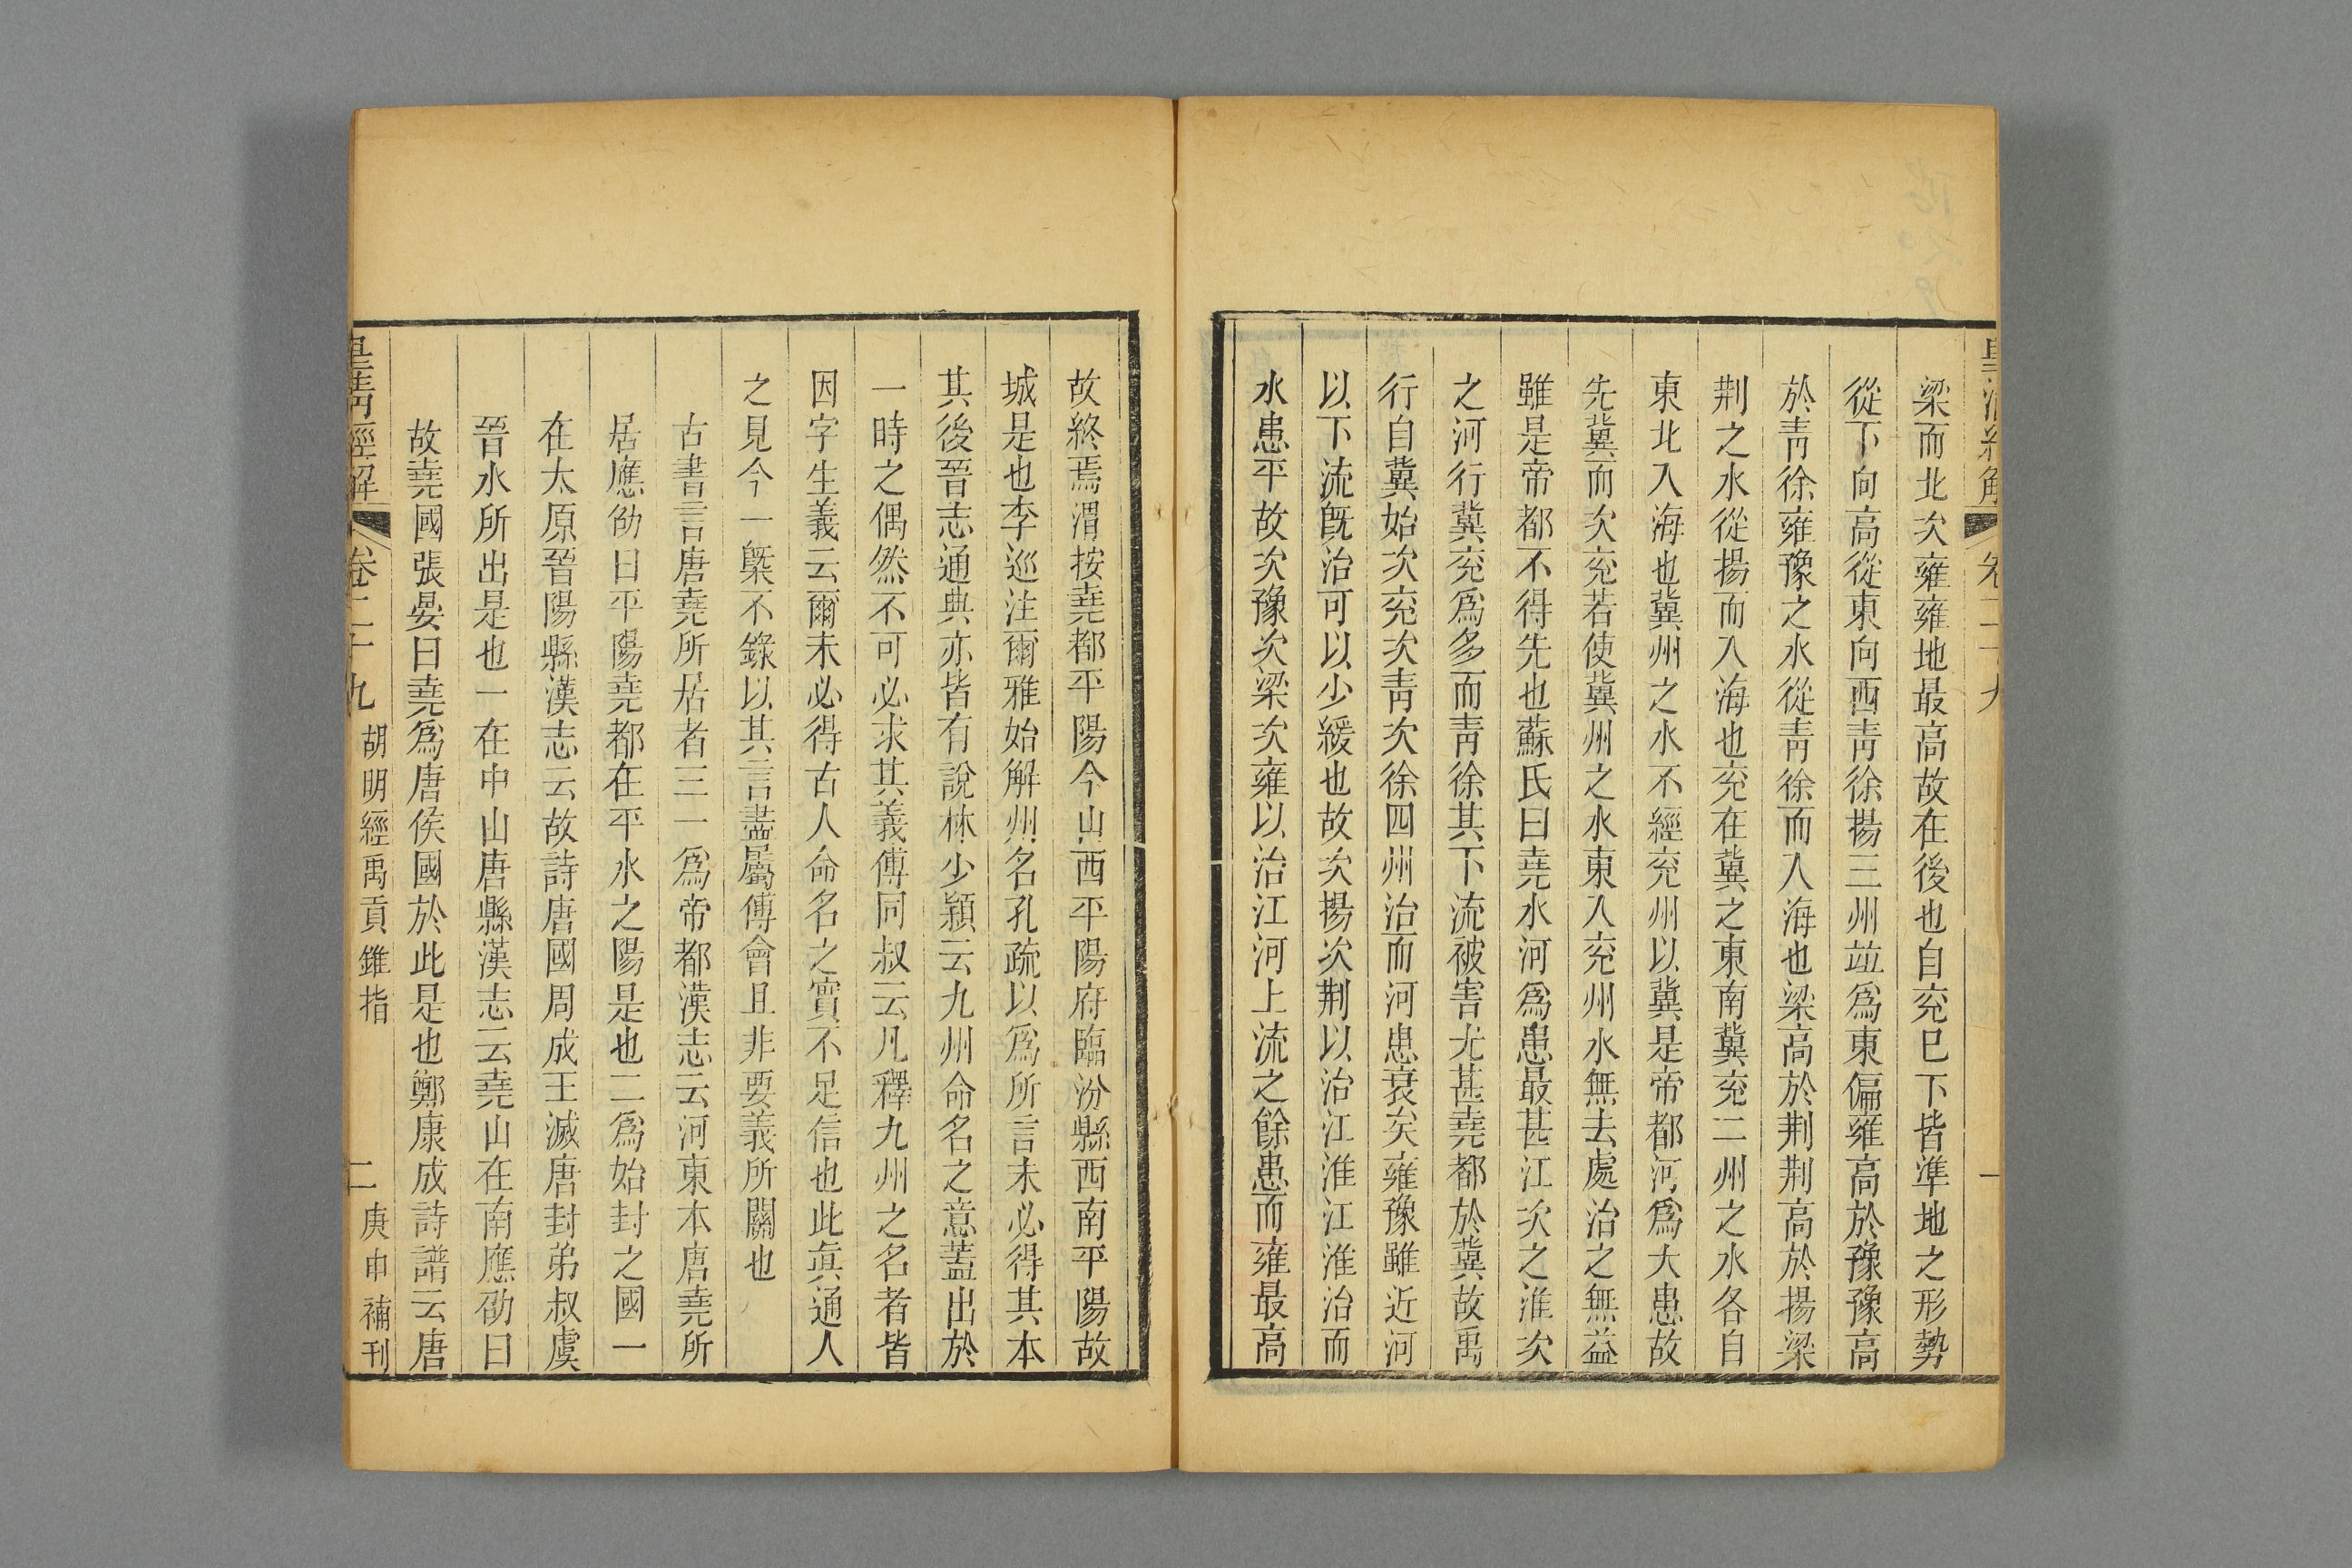 梁而北次雍雍地最高故在後也自兗巳下皆準地之形勢
從下向高從東向西靑徐揚三州竝爲東偏雍高於豫豫高
於靑徐雍豫之水從靑徐而入海也梁高於荆荆高於揚梁
荆之水從揚而入海也兗在冀之東南冀兗二州之水各自
東北入海也冀州之水不經兗州以冀是帝都河爲大患故
先冀而次兗若使冀州之水東入兗州水無去處治之無益
雖是帝都不得先也蘇氏曰堯水河爲患最甚江次之淮次
之河行冀兗爲多而靑徐其下流被害尤甚堯都於冀故禹
行自冀始次兗次靑次徐四州治而河患衰矣雍豫雖近河
以下流旣治可以少緩也故次揚次荆以治江淮江淮治而
水患平故次豫次梁次雍以治江河上流之餘患而雍最高
故終焉渭按堯都平陽今山西平陽府臨汾縣西南平陽故
城是也李巡注爾雅始解州名孔疏以爲所言未必得其本
其後晉志通典亦皆有說林少穎云九州命名之意蓋出於
一時之偶然不可必求其義傅同叔云凡釋九州之名者皆
因字生義云爾未必得古人命名之實不足信也此眞通人
之見今一槩不錄以其言盡屬傅會且非要義所關也
古書言唐堯所居者三一爲帝都漢志云河東本唐堯所
居應劭曰平陽堯都在平水之陽是也二爲始封之國一
在太原晉陽縣漢志云故詩唐國周成王滅唐封弟叔虞
晉水所出是也一在中山唐縣漢志云堯山在南應劭曰
故堯國張晏曰堯爲唐侯國於此是也鄭康成詩譜云唐
皇淸經解 卷二十九 胡明經禹貢錐指 二 庚申補刊